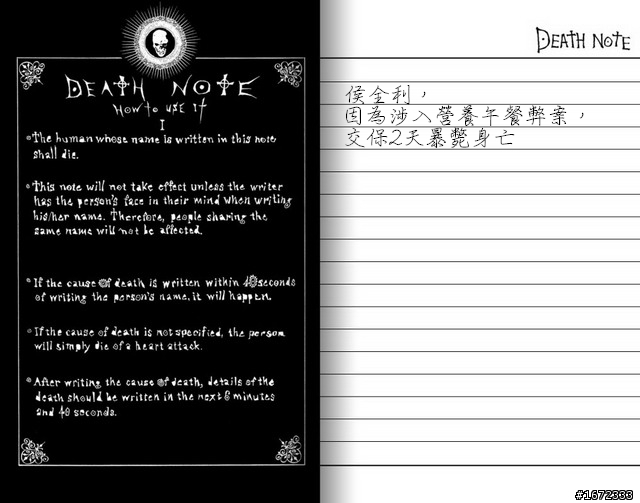 DEATH NOTE
How to use it
I
The human whose name is written in this note
shall die.
This note will not take effect unless the writer
has the person's face in their mind when writing
his/her name. Therefore, people sharing the
same name will not be affected.
If the cause of death is written within 40seconds
of writing the person's name, it will happen.
If the cause of death is not specified, the person
will simply die of a heart attack.
After writing the cause of death, details of the
death should be written in the next 6 minutes
and 40 seconds.
DEATH NOTE
侯金利，
因為涉入營養午餐弊案，
交保2天暴斃身亡
#1672333